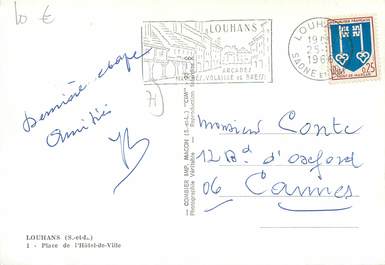 10 €
LOUHANS
ARCADES
VOLAILLE
LOUHANS
19
25-
196
SAONE ET
REPUBLIQUE FRANCAISE
0,25
MONT-DE-MARSAN
Dernière étape
Amitiés
Monsieur Conte
12 Bd d'oxford
06 Cannes
COMBIER IMP. MACON (S.-et-L.) "CIM"
Photographie Véritable - Reproduction interdite
LOUHANS (S.-et-L.)
1 - Place de l'Hôtel-de-Ville